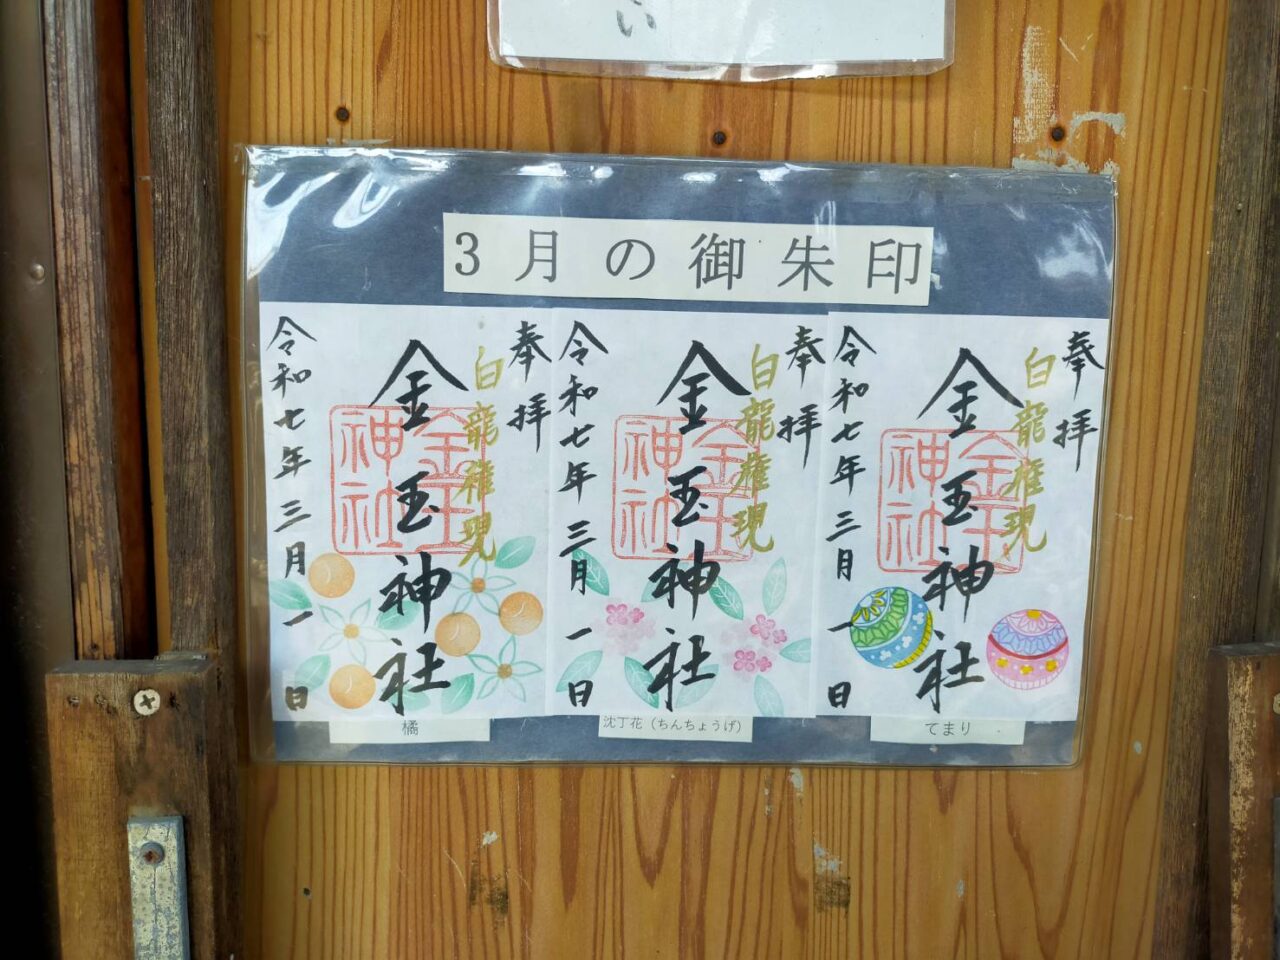 い
3月の御朱印
奉拝
白龍権現
金玉神社
金玉神社
令和七年三月一日
橘
奉拝
白龍権現
金玉神社
金玉神社
令和七年三月一日
沈丁花（ちんちょうげ）
奉拝
白龍権現
金玉神社
金玉神社
令和七年三月一日
てまり